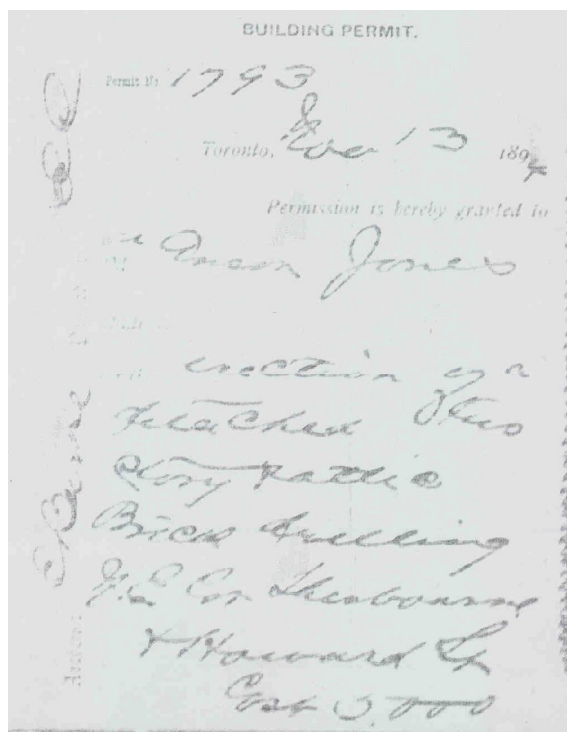 BUILDING PERMIT.
Permit No 1793
Toronto, 13 1894
Permission is hereby granted to
Anson Jones
erection of a
detached two
story & attic
Brick dwelling
N.E. Cor Sherbourne
& Howard St
Cost